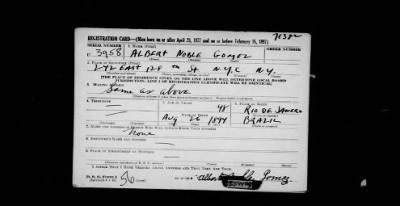 REGISTRATION CARD—(Men born on or after April 28, 1877 and on or before February 16, 1897)
SERIAL NUMBER 1. NAME (Print)
U 3958 ALBERT NOBLE GOMEZ
2. PLACE OF RESIDENCE (Print)
EAST ST. N.Y.C N.Y.
[THE PLACE OF RESIDENCE GIVEN ON THE LINE ABOVE WILL DETERMINE LOCAL BOARD
JURISDICTION; LINE 2 OF REGISTRATION CERTIFICATE WILL BE IDENTICAL]
3. MAILING ADDRESS
Same as above
4. TELEPHONE 5. AGE IN YEARS 6. PLACE OF BIRTH
48 RIO DE JANERO
DATE OF BIRTH
Aug 26 BRAZIL
7. NAME AND ADDRESS OF PERSON WHO WILL ALWAYS KNOW YOUR ADDRESS
None
8. EMPLOYER'S NAME AND ADDRESS
9. PLACE OF EMPLOYMENT OR BUSINESS
I AFFIRM THAT I HAVE VERIFIED ABOVE ANSWERS AND THAT THEY ARE TRUE.
D. S. S. Form 1
Albert Gomez